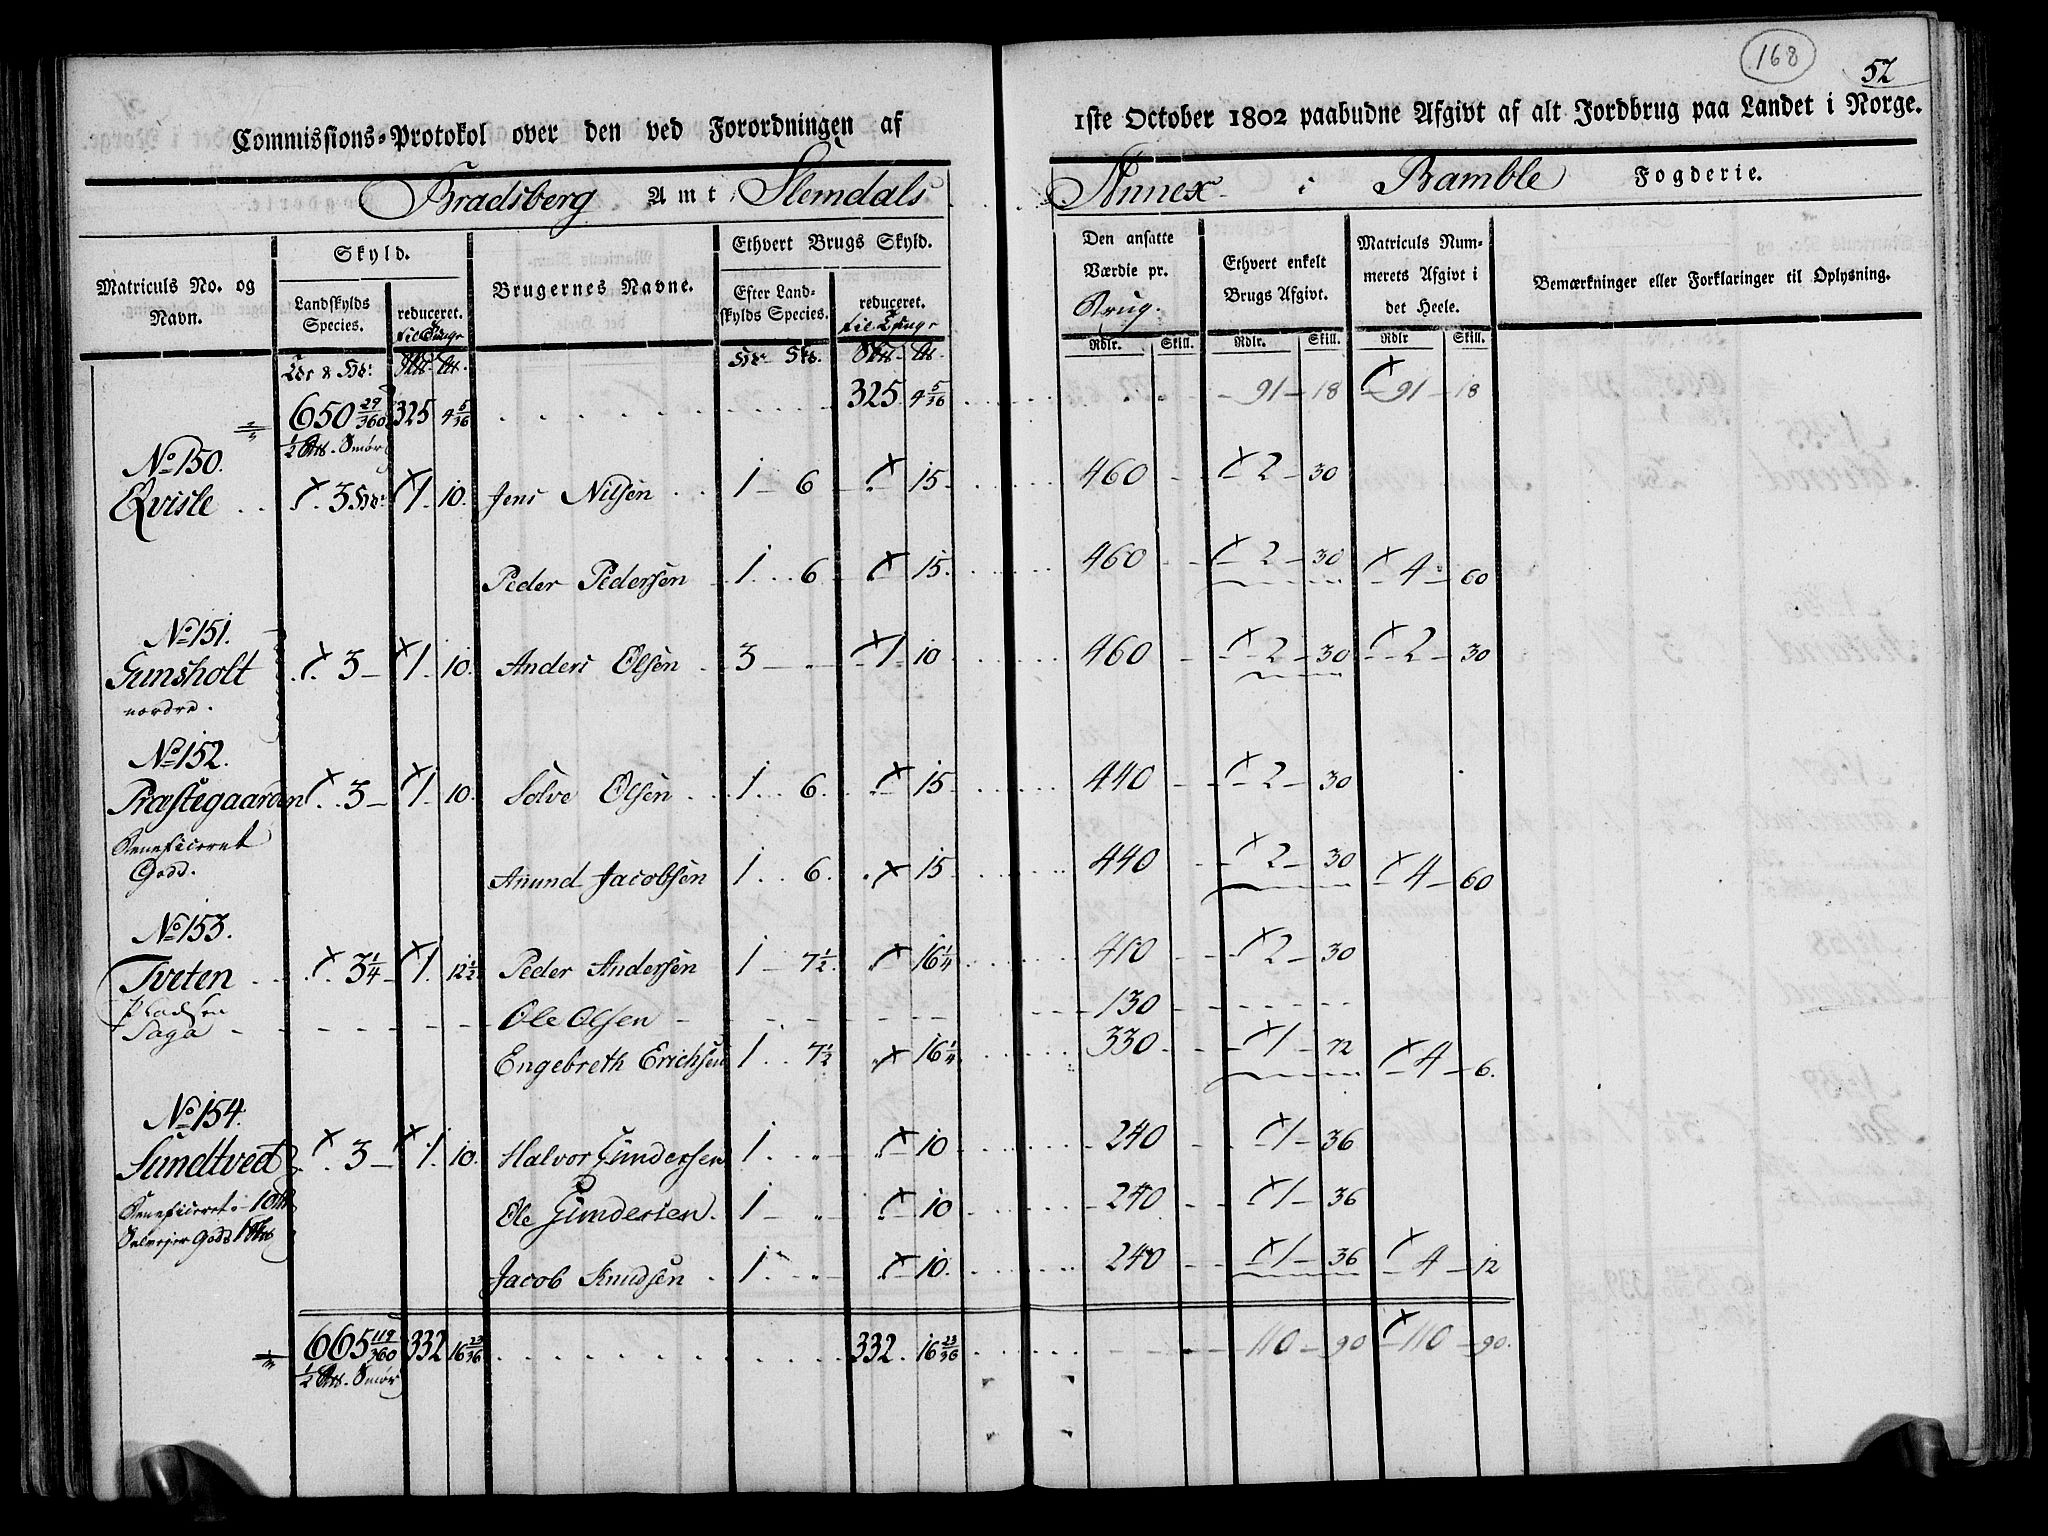 168
52
Commissions-Protokol over den ved Forordningen af 1ste October 1802 paabudne Afgivt af alt Jordbrug paa Landet i Norge.
Bradsberg Amt Slemdals Annex i Bamble Fogderie.
Matriculs No. og Navn.
Skyld.
Landskylds Species.
reduceret.
Brugernes Navne.
Ethvert Brugs Skyld.
Efter Landskylds Species.
reduceret.
Den ansatte Værdie pr. Brug.
Ethvert enkelt Brugs Afgivt.
Matriculs Nummerets Afgivt i det Heele.
Bemærkninger eller Forklaringer til Oplysning.
Rdlr. Skill. Rdlr. Skill. Rdlr Skill.
650 29/360 325 4 5/36 325 4 5/36 91 - 18 91 - 18
1/2 Smør
No 150.
Qvisle 3 Hd: 1 10. Jens Nilsen 1 - 6 15 460 2 - 30
Peder Pedersen 1 6 15. 460 2 - 30 4 - 60
No 151.
Gunsholt 3 1 10. Anders Olsen 3 1 10 460 2 - 30 2 - 30
nordre.
No 152.
Præstegaarden 3 1 10. Solve Olsen 1 6. 15 440 2 - 30
Beneficeret
Gods. Anund Jacobsen 1 6. 15 440 2 - 30 4 - 60
No 153.
Tveten 3 1/4 1 12 1/2 Peder Andersen 1 - 7 1/2. 16 1/4 410 2 - 30
Pladsen
Saga Ole Olsen 130
Engebreth Erichsen 1 7 1/2 16 1/4 330 1 - 72 4 - 6.
No 154.
Sundtved 3 1 10. Halvor Gundersen 1 10 240 1 - 36
Beneficeret
Ole Gundersen. 1 10 240 1 - 36
Selveier Gods
Jacob Knudsen 1 10. 240 1 - 36 4 - 12
665 119/360 332 16 23/36 332. 16 23/36 110 - 90 110 - 90.
1/2 Smør